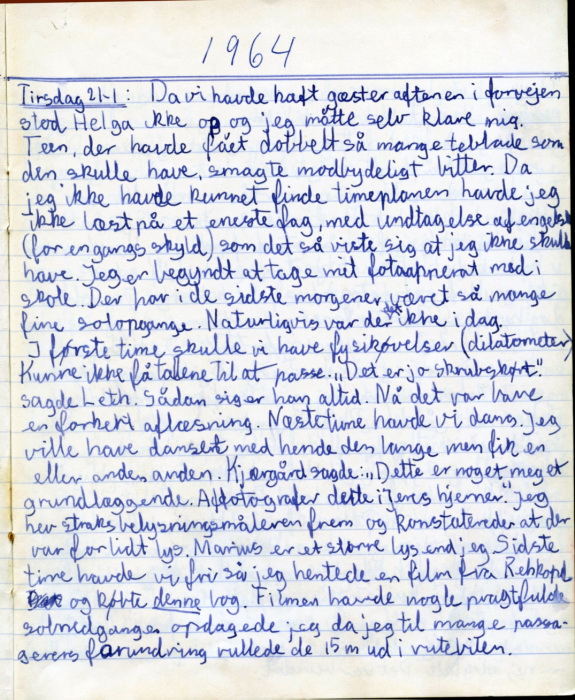 1964
Tirsdag 21-1: Da vi havde haft gæster aftenen i forvejen
stod Helga ikke op og jeg måtte selv klare mig.
Teen, der havde fået dobbelt så mange teblade som
den skulle have, smagte modbydeligt bitter. Da
jeg ikke havde kunnet finde timeplanen havde jeg
ikke læst på et eneste fag, med undtagelse af engelsk
(for engangs skyld) som det så viste sig at jeg ikke skulle
have. Jeg er begyndt at tage mit fotoapperat med i
skole. Der har i de sidste morgener været så mange
fine solopgange. Naturligvis var der ikke i dag.
I første time skulle vi have fysikøvelser (dilatometer)
Kunne ikke få talene til at passe. "Det er jo skrubskørt."
sagde Leth. Sådan siger han altid. Nå det var bare
en forkert aflæsning. Næste time havde vi dans. Jeg
ville have danset med hende den lange men fik en
eller anden anden. Kjærgård sagde: "Dette er noget meget
grundlæggende. Affotografer dette i Jeres hjerner." Jeg
hev straks belysningsmåleren frem og konstaterede at der
var for lidt lys. Marius er et større lys end jeg. Sidste
time havde vi fri så jeg hentede en film fra Rehkopf
og købte denne bog. Filmen havde nogle pragtfulde
solnedgange opdagede jeg da jeg til mange passa-
gerers forundring rullede de 15 m ud i rutebilen.